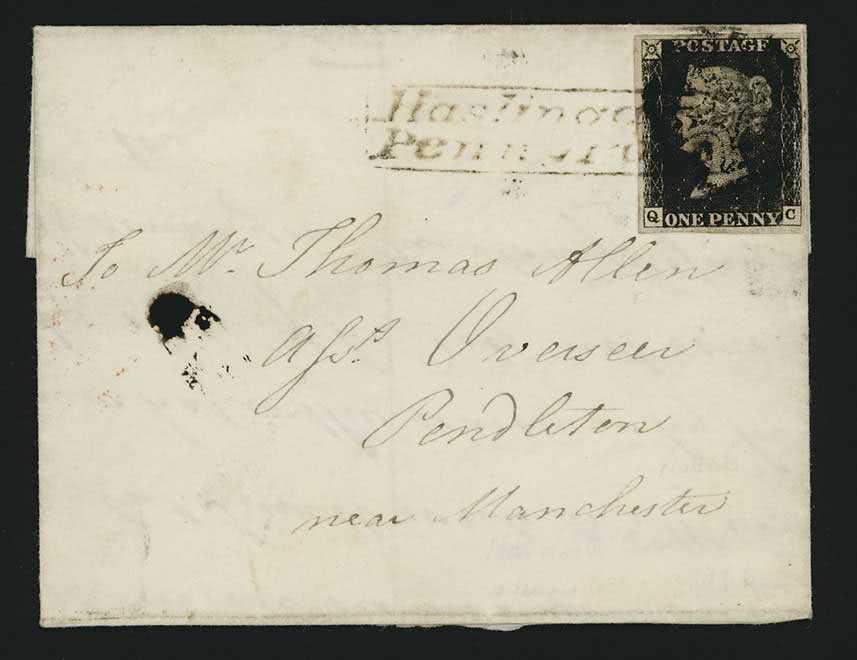 POSTAGE
Haslingd
Penny P
Q ONE PENNY C
To Mr. Thomas Allen
Asst. Overseer
Pendleton
near Manchester